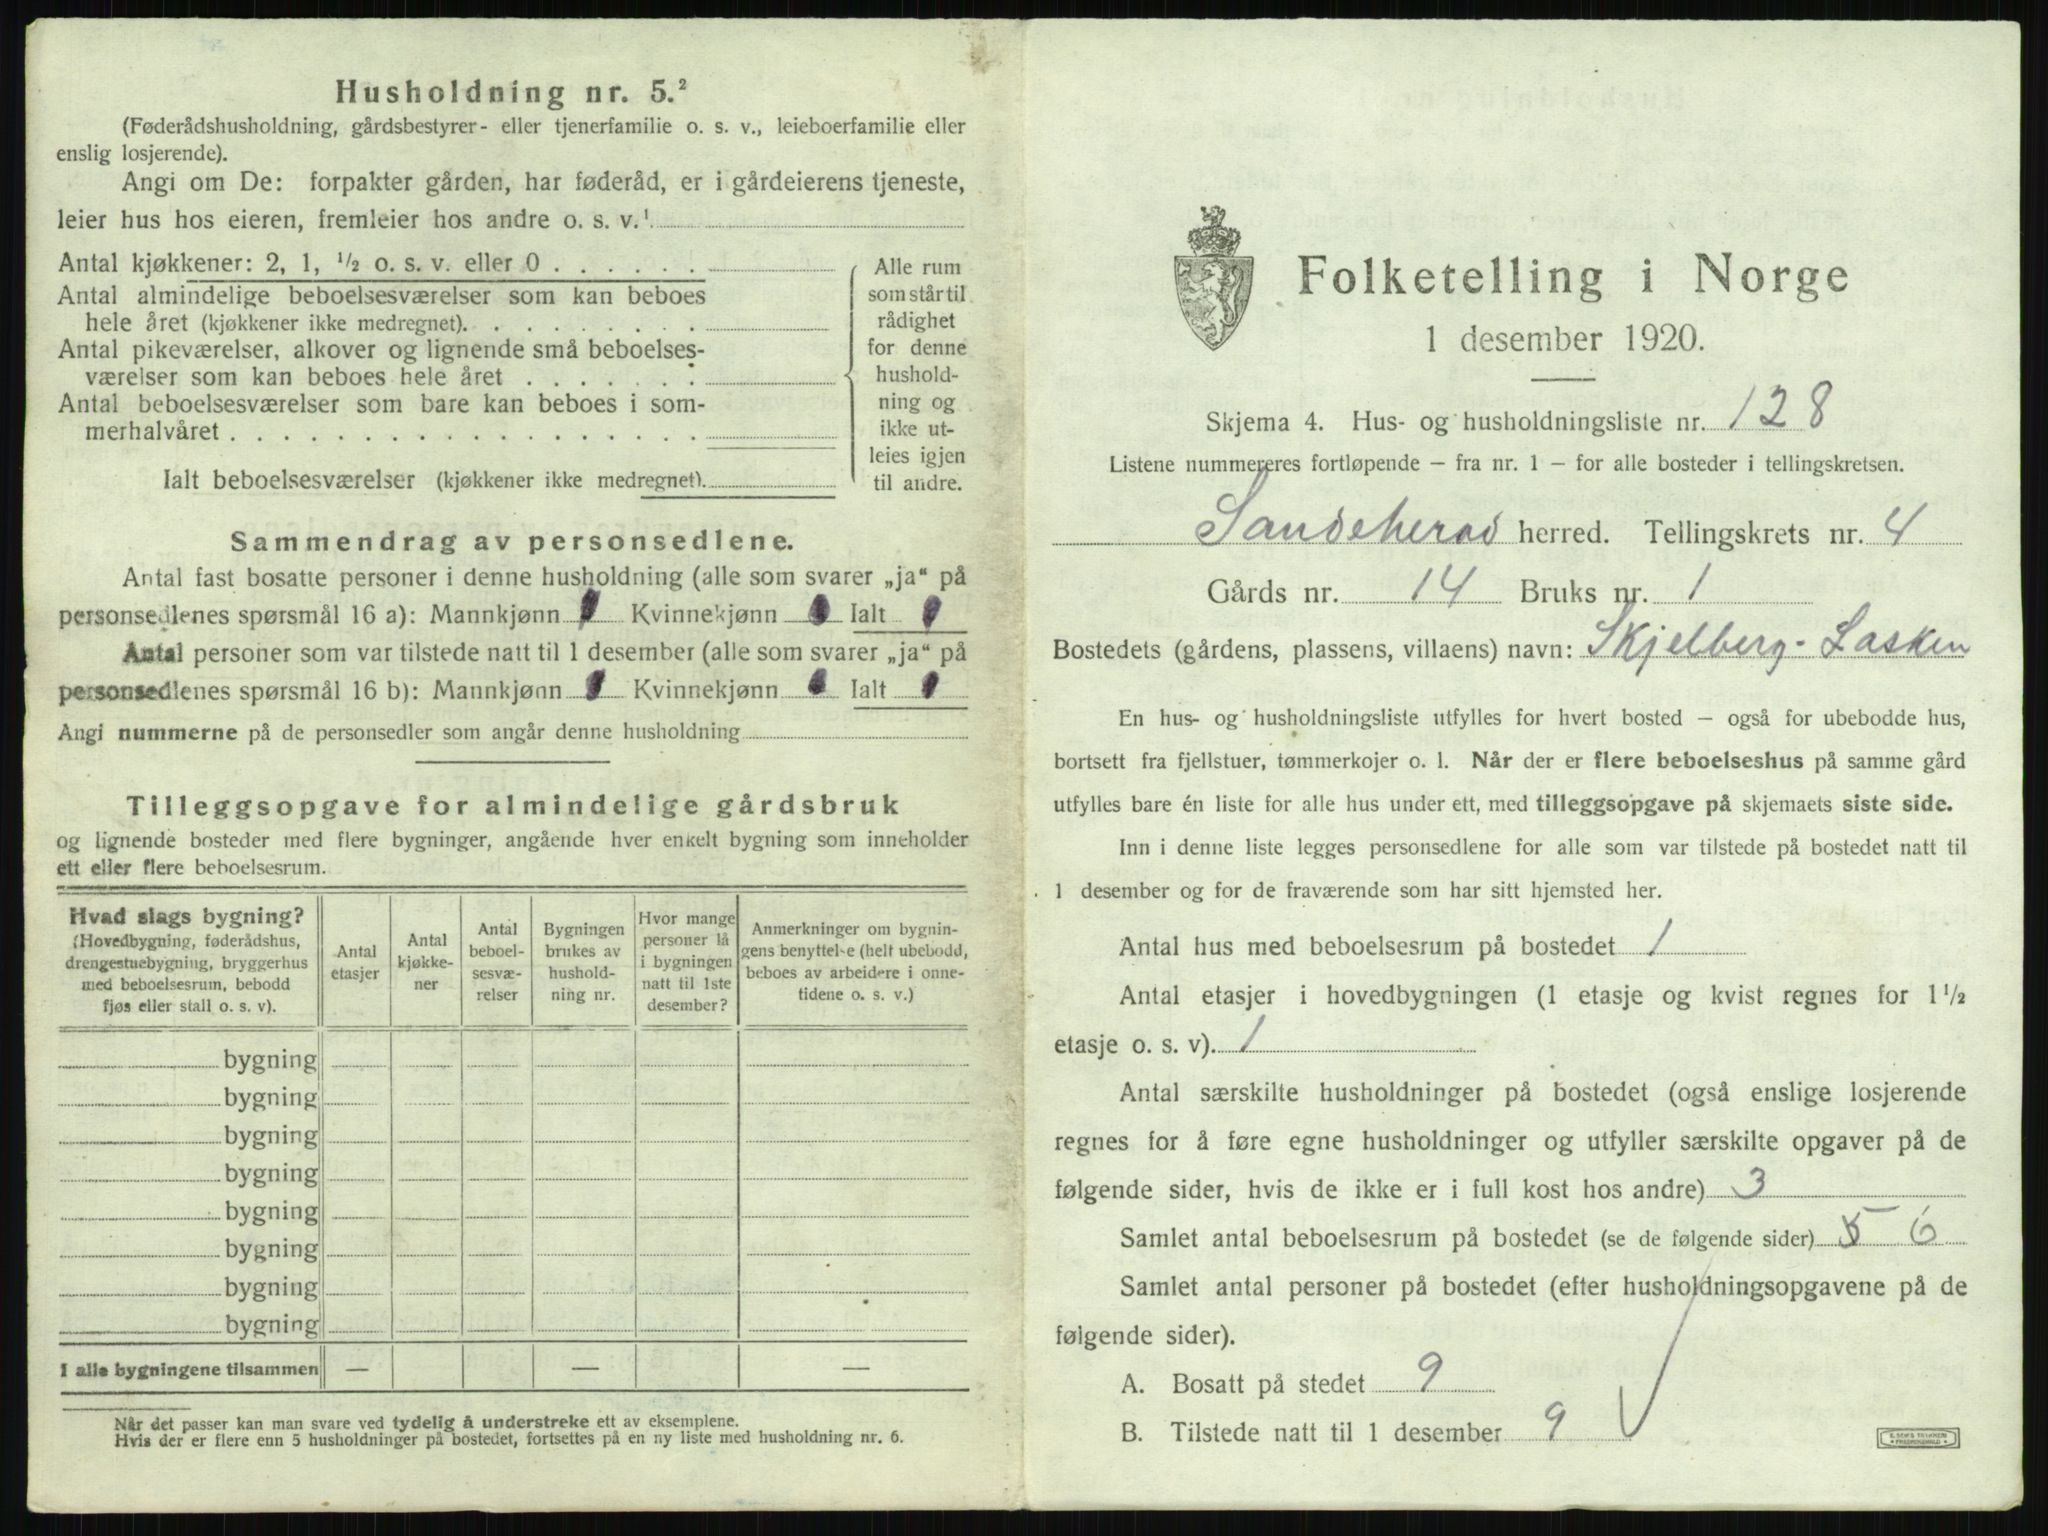 Husholdning nr. 5.²
(Føderådshusholdning, gårdsbestyrer- eller tjenerfamilie o. s. v., leieboerfamilie eller
enslig losjerende).
Angi om De: forpakter gården, har føderåd, er i gårdeierens tjeneste,
leier hus hos eieren, fremleier hos andre o. s. v.¹
Antal kjøkkener: 2, 1, ½ o. s. v. eller 0 . . . . . .
Antal almindelige beboelsesværelser som kan beboes
hele året (kjøkkener ikke medregnet). . . . . . . . .
Antal pikeværelser, alkover og lignende små beboelses-
værelser som kan beboes hele året . . . . . . .
Antal beboelsesværelser som bare kan beboes i som-
merhalvåret . . . . . . . . . . . . . . . . . .
Ialt beboelsesværelser (kjøkkener ikke medregnet).
Alle rum
som står til
rådighet
for denne
hushold-
ning og
ikke ut-
leies igjen
til andre.
Sammendrag av personsedlene.
Antal fast bosatte personer i denne husholdning (alle som svarer „ja“ på
personsedlenes spørsmål 16 a): Mannkjønn Kvinnekjønn Ialt
Antal personer som var tilstede natt til 1 desember (alle som svarer „ja“ på
personsedlenes spørsmål 16 b): Mannkjønn Kvinnekjønn Ialt
Angi nummerne på de personsedler som angår denne husholdning
Tilleggsopgave for almindelige gårdsbruk
og lignende bosteder med flere bygninger, angående hver enkelt bygning som inneholder
ett eller flere beboelsesrum.
Hvad slags bygning?
(Hovedbygning, føderådshus,
drengestuebygning, bryggerhus
med beboelsesrum, bebodd
fjøs eller stall o. s. v).
Antal
etasjer
Antal
kjøkke-
ner
Antal
beboel-
sesvæ-
relser
Bygningen
brukes av
hushold-
ning nr.
Hvor mange
personer lå
i bygningen
natt til 1ste
desember?
Anmerkninger om bygnin-
gens benyttelse (helt ubebodd,
beboes av arbeidere i onne-
tidene o. s. v.)
bygning
bygning
bygning
bygning
bygning
bygning
bygning
bygning
I alle bygningene tilsammen — — —
Når det passer kan man svare ved tydelig å understreke ett av eksemplene.
Hvis der er flere enn 5 husholdninger på bostedet, fortsettes på en ny liste med husholdning nr. 6.
Folketelling i Norge
1 desember 1920.
Skjema 4. Hus- og husholdningsliste nr. 128
Listene nummereres fortløpende – fra nr. 1 – for alle bosteder i tellingskretsen.
Sandeherad herred. Tellingskrets nr. 4
Gårds nr. 14 Bruks nr. 1
Bostedets (gårdens, plassens, villaens) navn: Skjelberg - Lasken
En hus- og husholdningsliste utfylles for hvert bosted – også for ubebodde hus,
bortsett fra fjellstuer, tømmerkojer o. l. Når der er flere beboelseshus på samme gård
utfylles bare én liste for alle hus under ett, med tilleggsopgave på skjemaets siste side.
Inn i denne liste legges personsedlene for alle som var tilstede på bostedet natt til
1 desember og for de fraværende som har sitt hjemsted her.
Antal hus med beboelsesrum på bostedet 1
Antal etasjer i hovedbygningen (1 etasje og kvist regnes for 1 ½
etasje o. s. v). 1
Antal særskilte husholdninger på bostedet (også enslige losjerende
regnes for å føre egne husholdninger og utfyller særskilte opgaver på de
følgende sider, hvis de ikke er i full kost hos andre) 3
Samlet antal beboelsesrum på bostedet (se de følgende sider) 5 6
Samlet antal personer på bostedet (efter husholdningsopgavene på de
følgende sider).
A. Bosatt på stedet 9
B. Tilstede natt til 1 desember 9